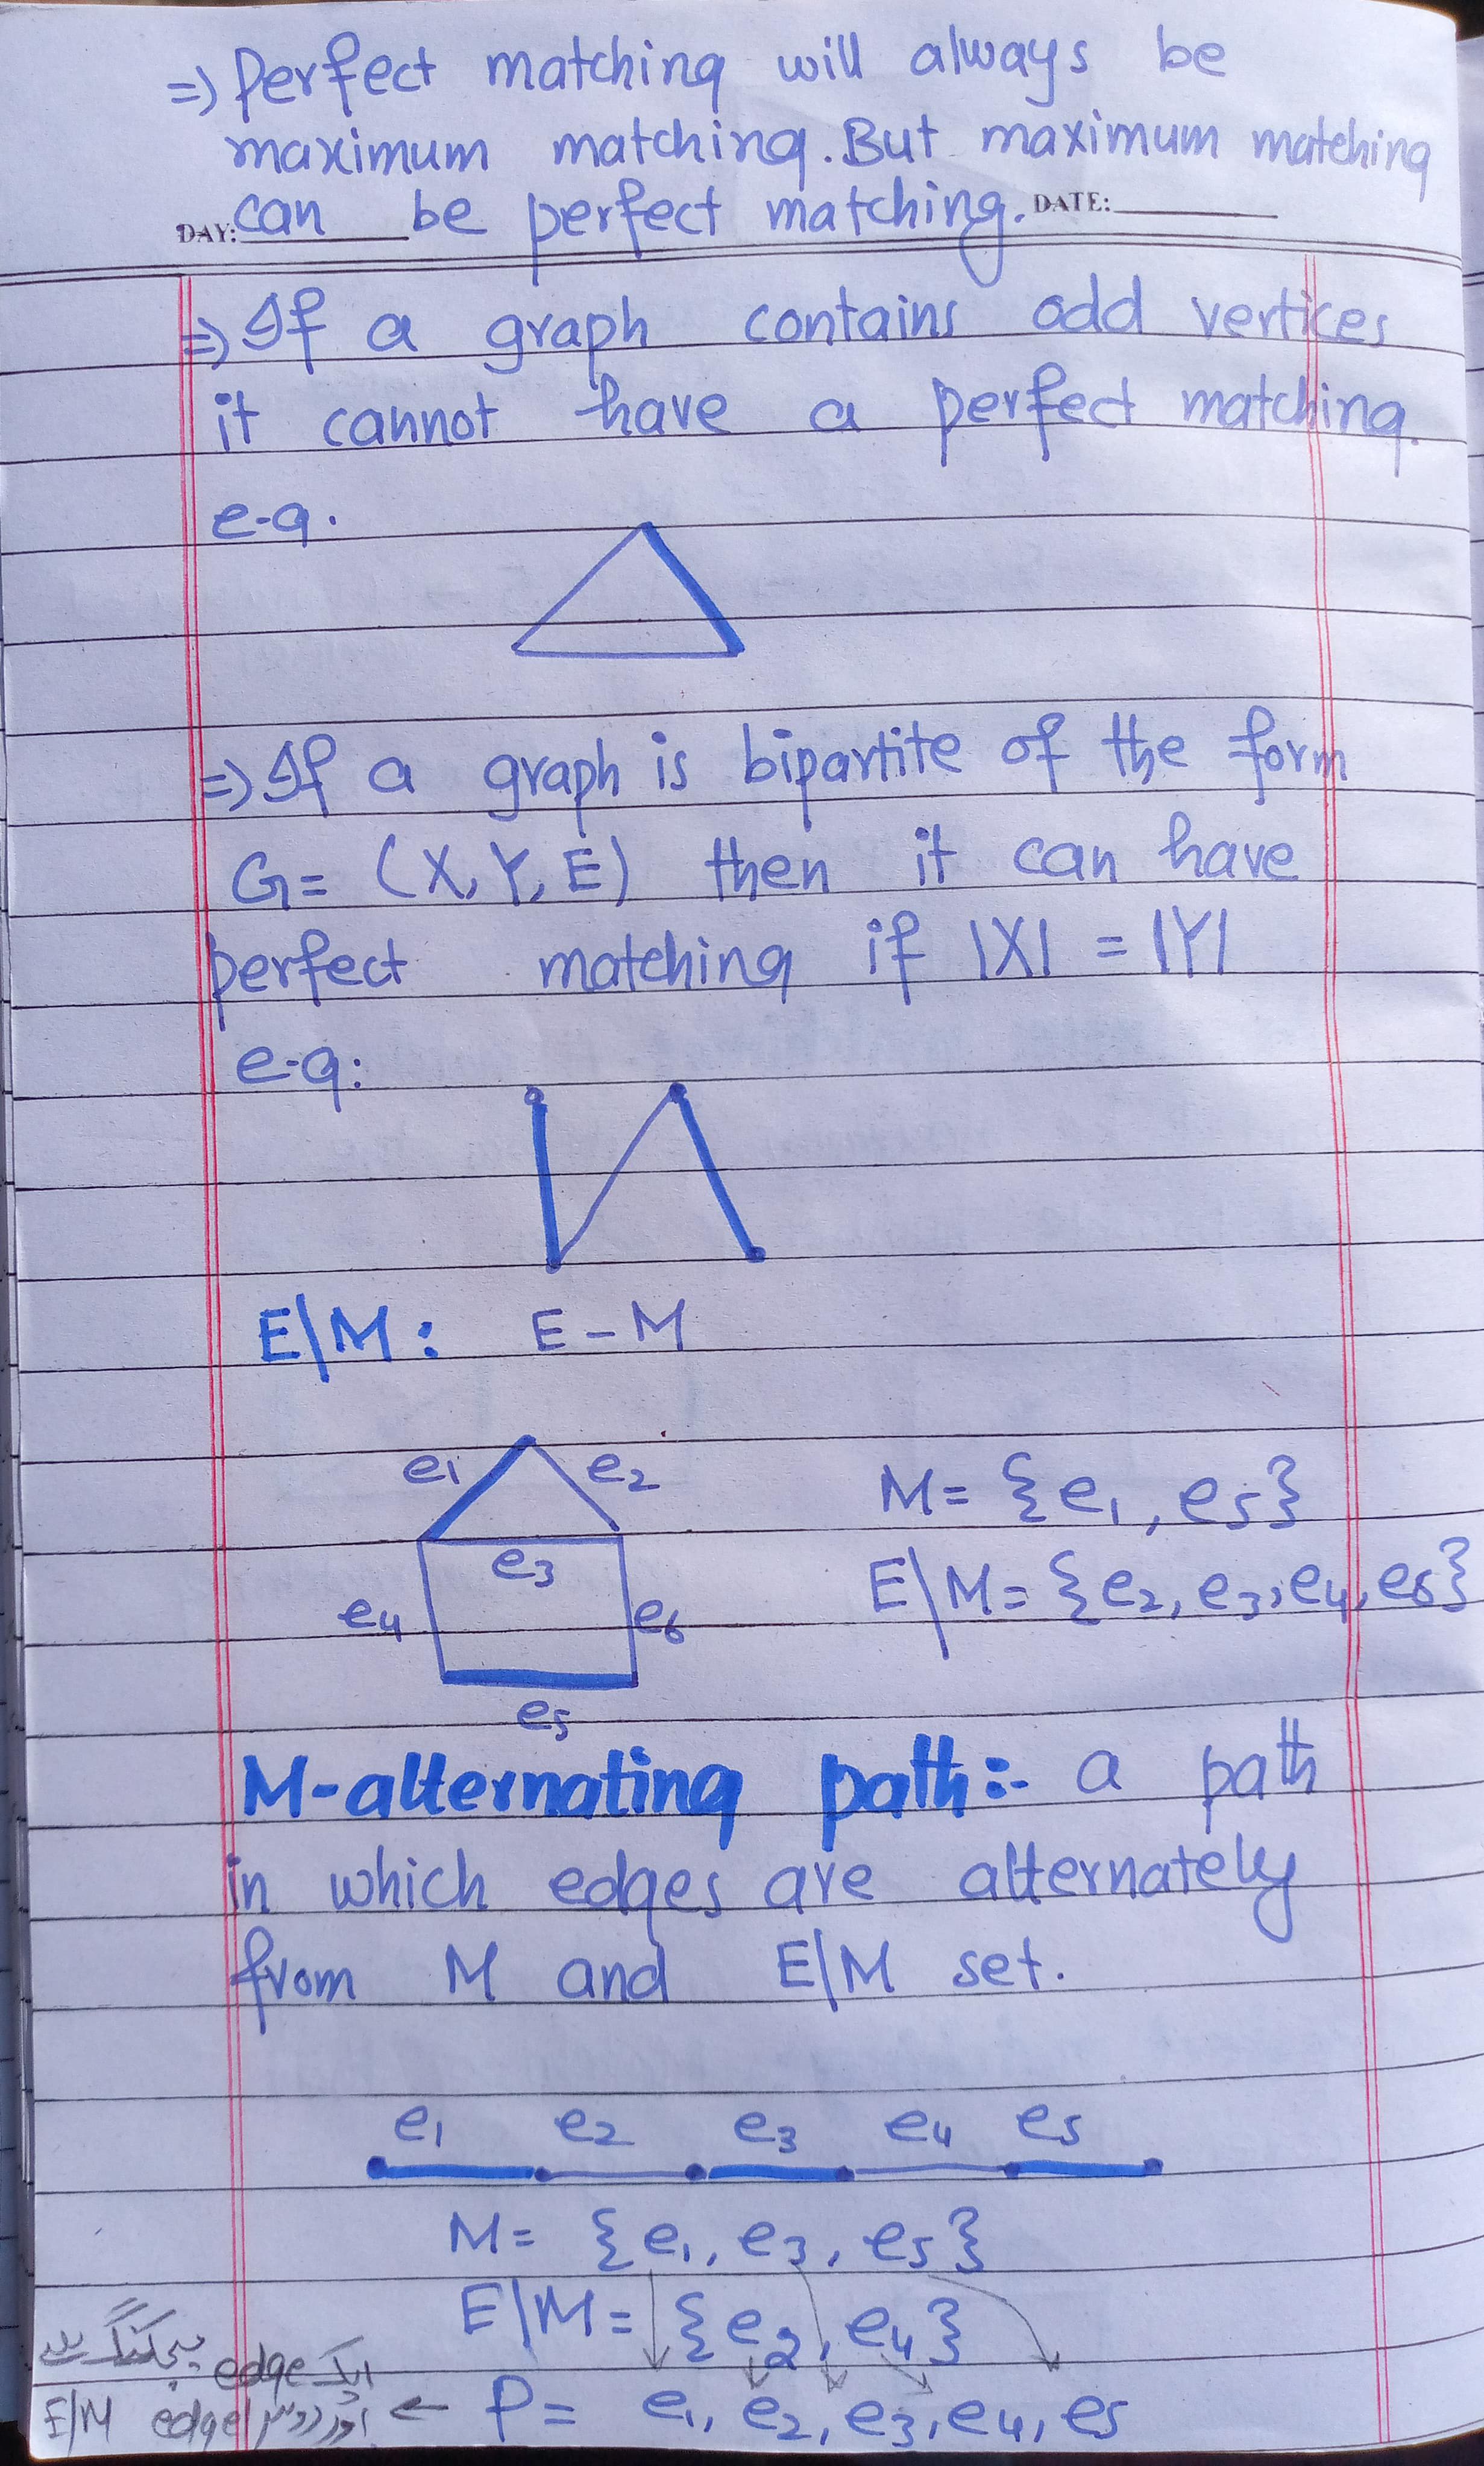 => Perfect matching will always be
maximum matching. But maximum matching
can be perfect matching.
DAY: DATE:
=> If a graph contains odd vertices
it cannot have a perfect matching.
e-g.
=> If a graph is bipartite of the form
G = (X, Y, E) then it can have
perfect matching if |X| = |Y|
e-g:
E\M: E - M
e1 e2
e3
e4 e6
e5
M = {e1, e5}
E\M = {e2, e3, e4, e6}
M-alternating path:- a path
in which edges are alternately
from M and E\M set.
e1 e2 e3 e4 e5
M = {e1, e3, e5}
E\M = {e2, e4}
P = e1, e2, e3, e4, e5
ایک edge میچنگ سے
← اور دوسرا edge E\M